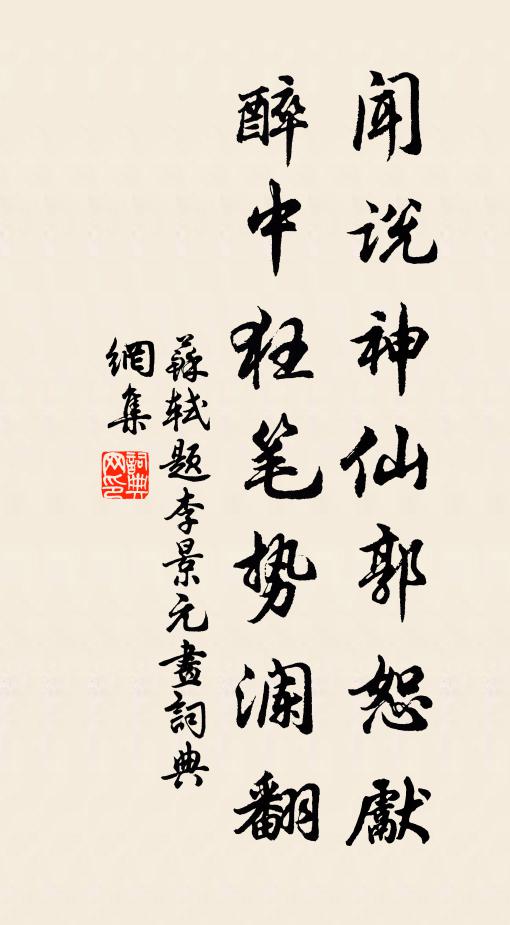 闻说神仙郭恕獻
醉中狂笔势澜翻
蘇轼题李景元畫詞典
網集
詞典网印